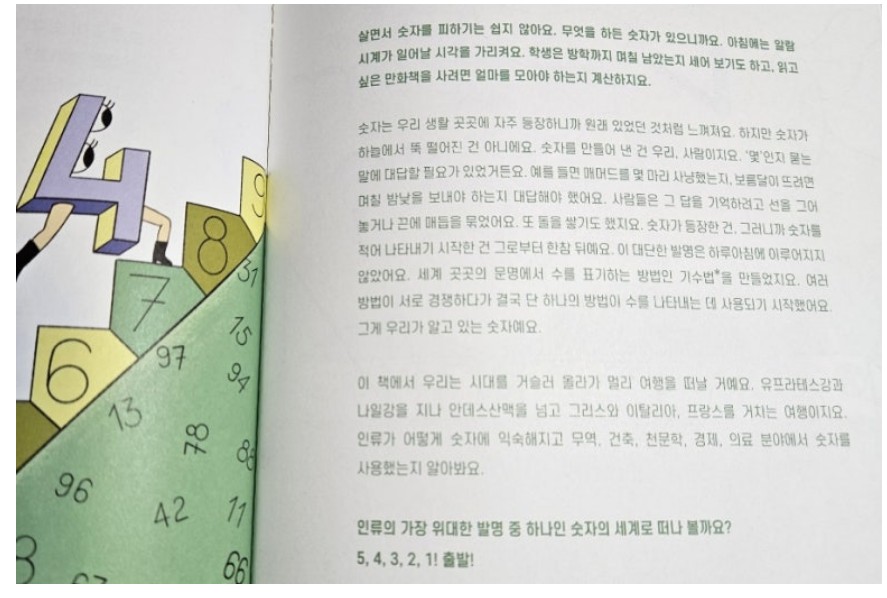 살면서 숫자를 피하기는 쉽지 않아요. 무엇을 하든 숫자가 있으니까요. 아침에는 알람
시계가 일어날 시각을 가리켜요. 학생은 방학까지 며칠 남았는지 세어 보기도 하고, 읽고
싶은 만화책을 사려면 얼마를 모아야 하는지 계산하지요.
숫자는 우리 생활 곳곳에 자주 등장하니까 원래 있었던 것처럼 느껴져요. 하지만 숫자가
하늘에서 뚝 떨어진 건 아니에요. 숫자를 만들어 낸 건 우리, 사람이지요. '몇'인지 묻는
말에 대답할 필요가 있었거든요. 예를 들면 매머드를 몇 마리 사냥했는지, 보름달이 뜨려면
며칠 밤낮을 보내야 하는지 대답해야 했어요. 사람들은 그 답을 기억하려고 선을 그어
놓거나 끈에 매듭을 묶었어요. 또 돌을 쌓기도 했지요. 숫자가 등장한 건, 그러니까 숫자를
적어 나타내기 시작한 건 그로부터 한참 뒤예요. 이 대단한 발명은 하루아침에 이루어지지
않았어요. 세계 곳곳의 문명에서 수를 표기하는 방법인 기수법*을 만들었지요. 여러
방법이 서로 경쟁하다가 결국 단 하나의 방법이 수를 나타내는 데 사용되기 시작했어요.
그게 우리가 알고 있는 숫자예요.
이 책에서 우리는 시대를 거슬러 올라가 멀리 여행을 떠날 거예요. 유프라테스강과
나일강을 지나 안데스산맥을 넘고 그리스와 이탈리아, 프랑스를 거치는 여행이지요.
인류가 어떻게 숫자에 익숙해지고 무역, 건축, 천문학, 경제, 의료 분야에서 숫자를
사용했는지 알아봐요.
인류의 가장 위대한 발명 중 하나인 숫자의 세계로 떠나 볼까요?
5, 4, 3, 2, 1! 출발!
4
9
8
31
7
15
97
6
94
13
78
96
42
11
66